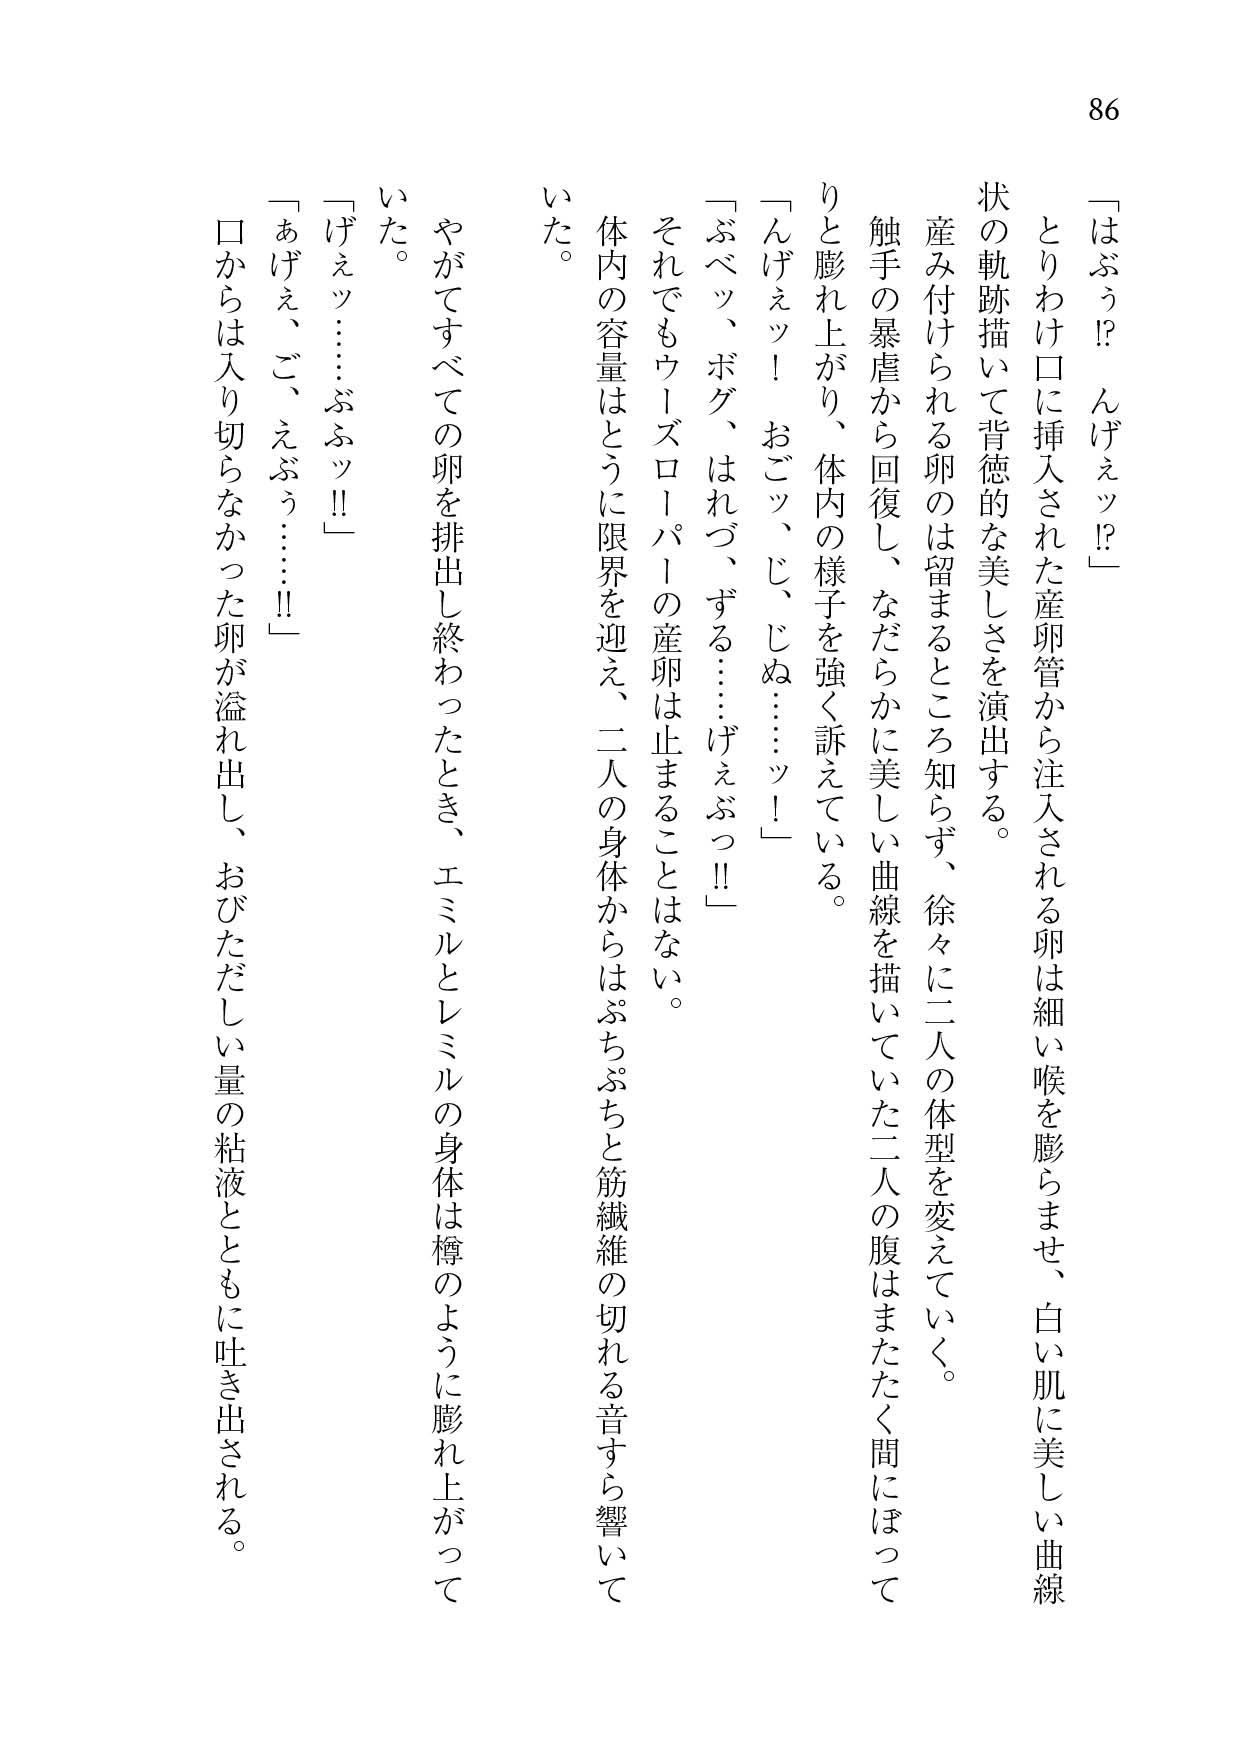 86
「はぶぅ!?　んげぇッ!?」
　とりわけ口に挿入された産卵管から注入される卵は細い喉を膨らませ、白い肌に美しい曲線
状の軌跡描いて背徳的な美しさを演出する。
　産み付けられる卵のは留まるところ知らず、徐々に二人の体型を変えていく。
　触手の暴虐から回復し、なだらかに美しい曲線を描いていた二人の腹はまたたく間にぼって
りと膨れ上がり、体内の様子を強く訴えている。
「んげぇッ！　おごッ、じ、じぬ……ッ！」
「ぶべッ、ボグ、はれづ、ずる……げぇぶっ!!」
　それでもウーズローパーの産卵は止まることはない。
　体内の容量はとうに限界を迎え、二人の身体からはぷちぷちと筋繊維の切れる音すら響いて
いた。
　やがてすべての卵を排出し終わったとき、エミルとレミルの身体は樽のように膨れ上がって
いた。
「げぇッ……ぶふッ!!」
「ぁげぇ、ご、えぶぅ……!!」
　口からは入り切らなかった卵が溢れ出し、おびただしい量の粘液とともに吐き出される。